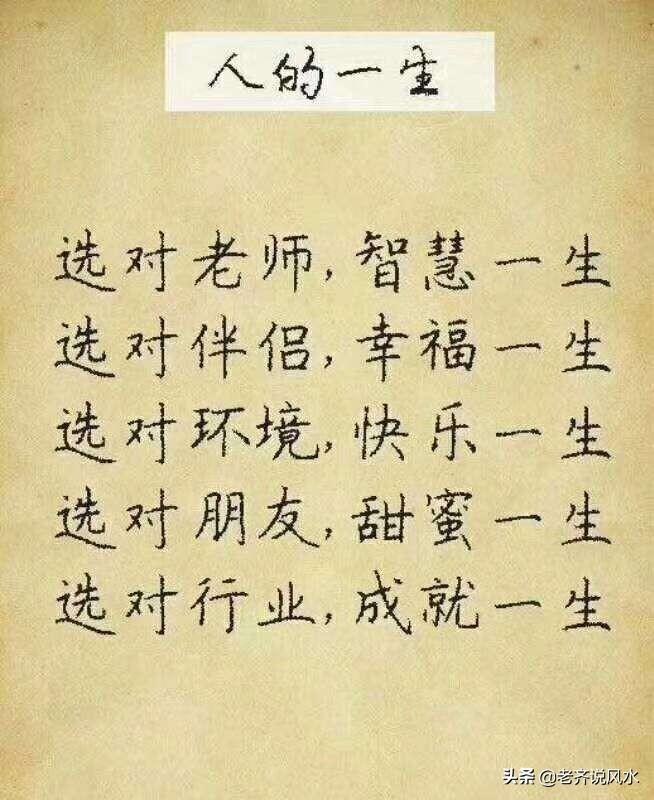 人的一生
选对老师,智慧一生
选对伴侣,幸福一生
选对环境,快乐一生
选对朋友,甜蜜一生
选对行业,成就一生
头条 @老齐说风水